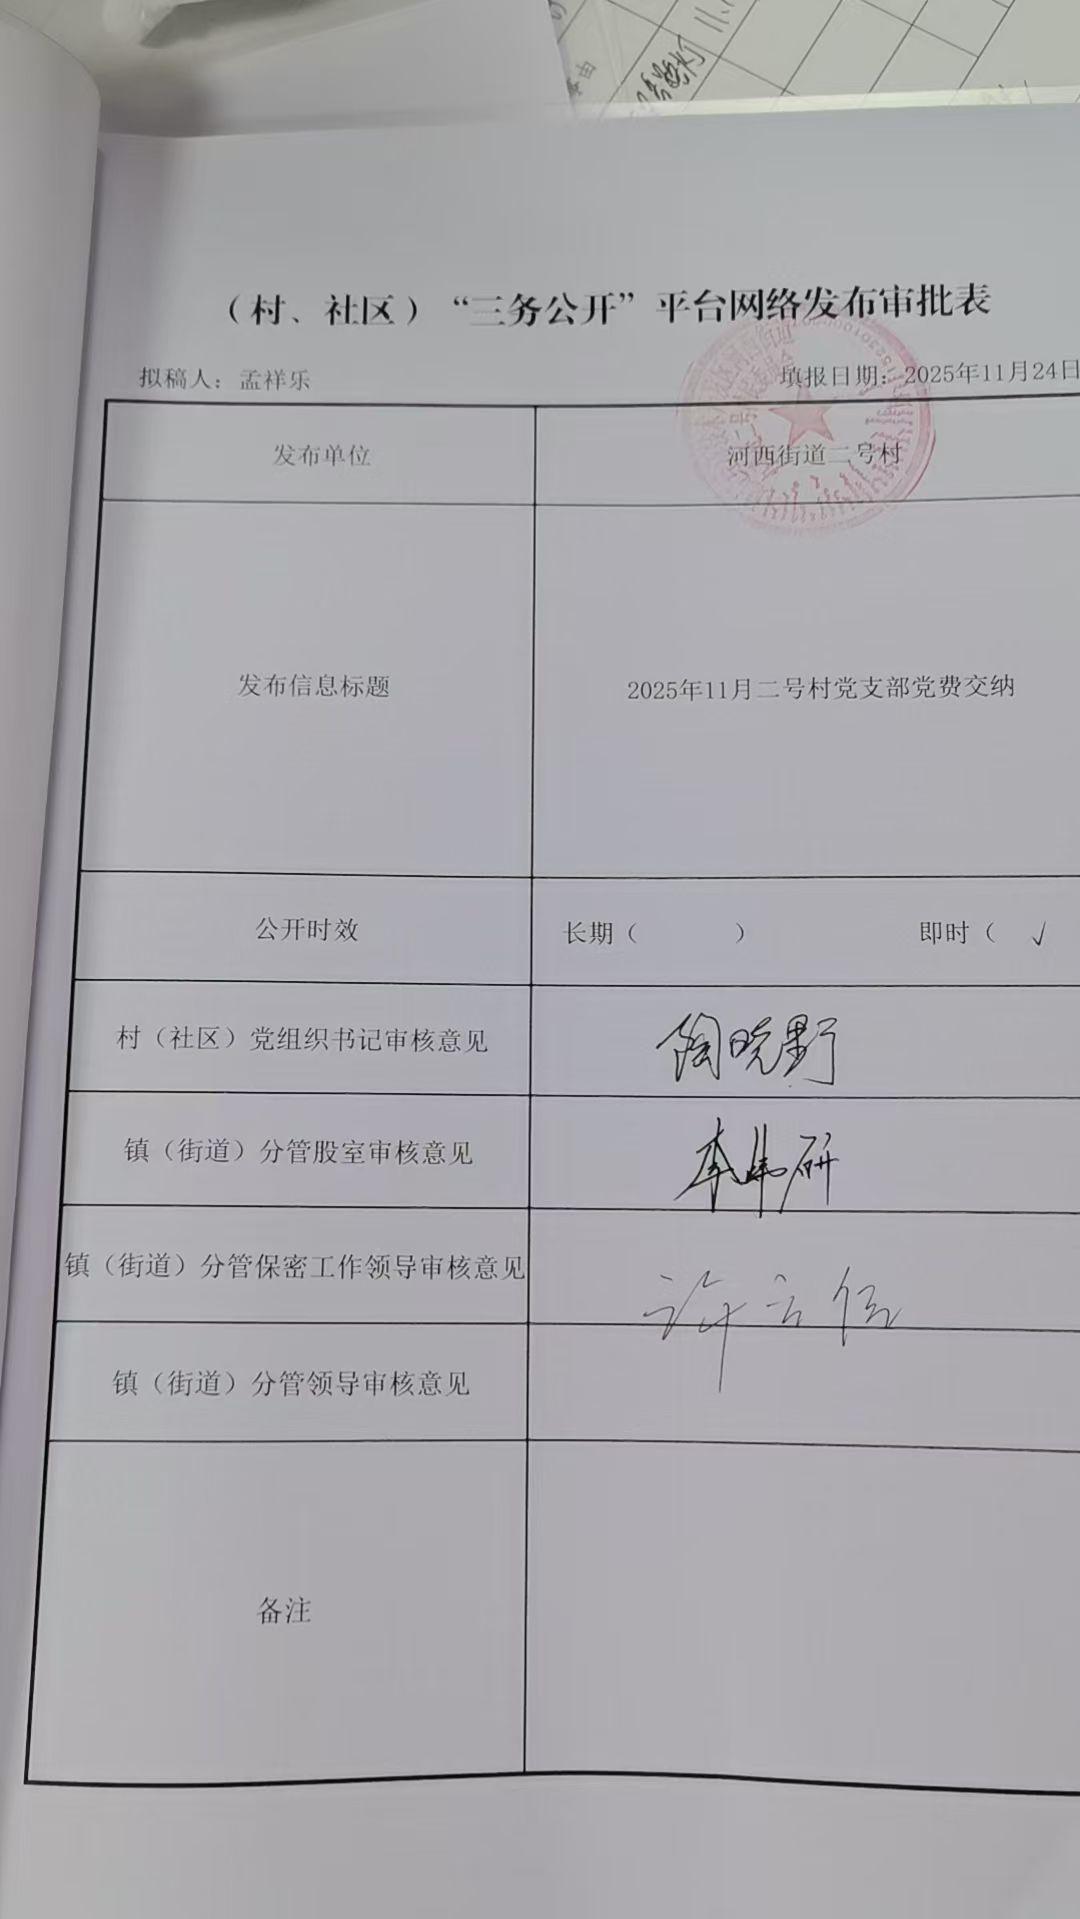 （村、社区）“三务公开”平台网络发布审批表
拟稿人：孟祥乐 填报日期：2025年11月24日
发布单位 河西街道二号村
发布信息标题 2025年11月二号村党支部党费交纳
公开时效 长期（ ） 即时（ √
村（社区）党组织书记审核意见 陶晓野
镇（街道）分管股室审核意见 李
镇（街道）分管保密工作领导审核意见 许
镇（街道）分管领导审核意见
备注